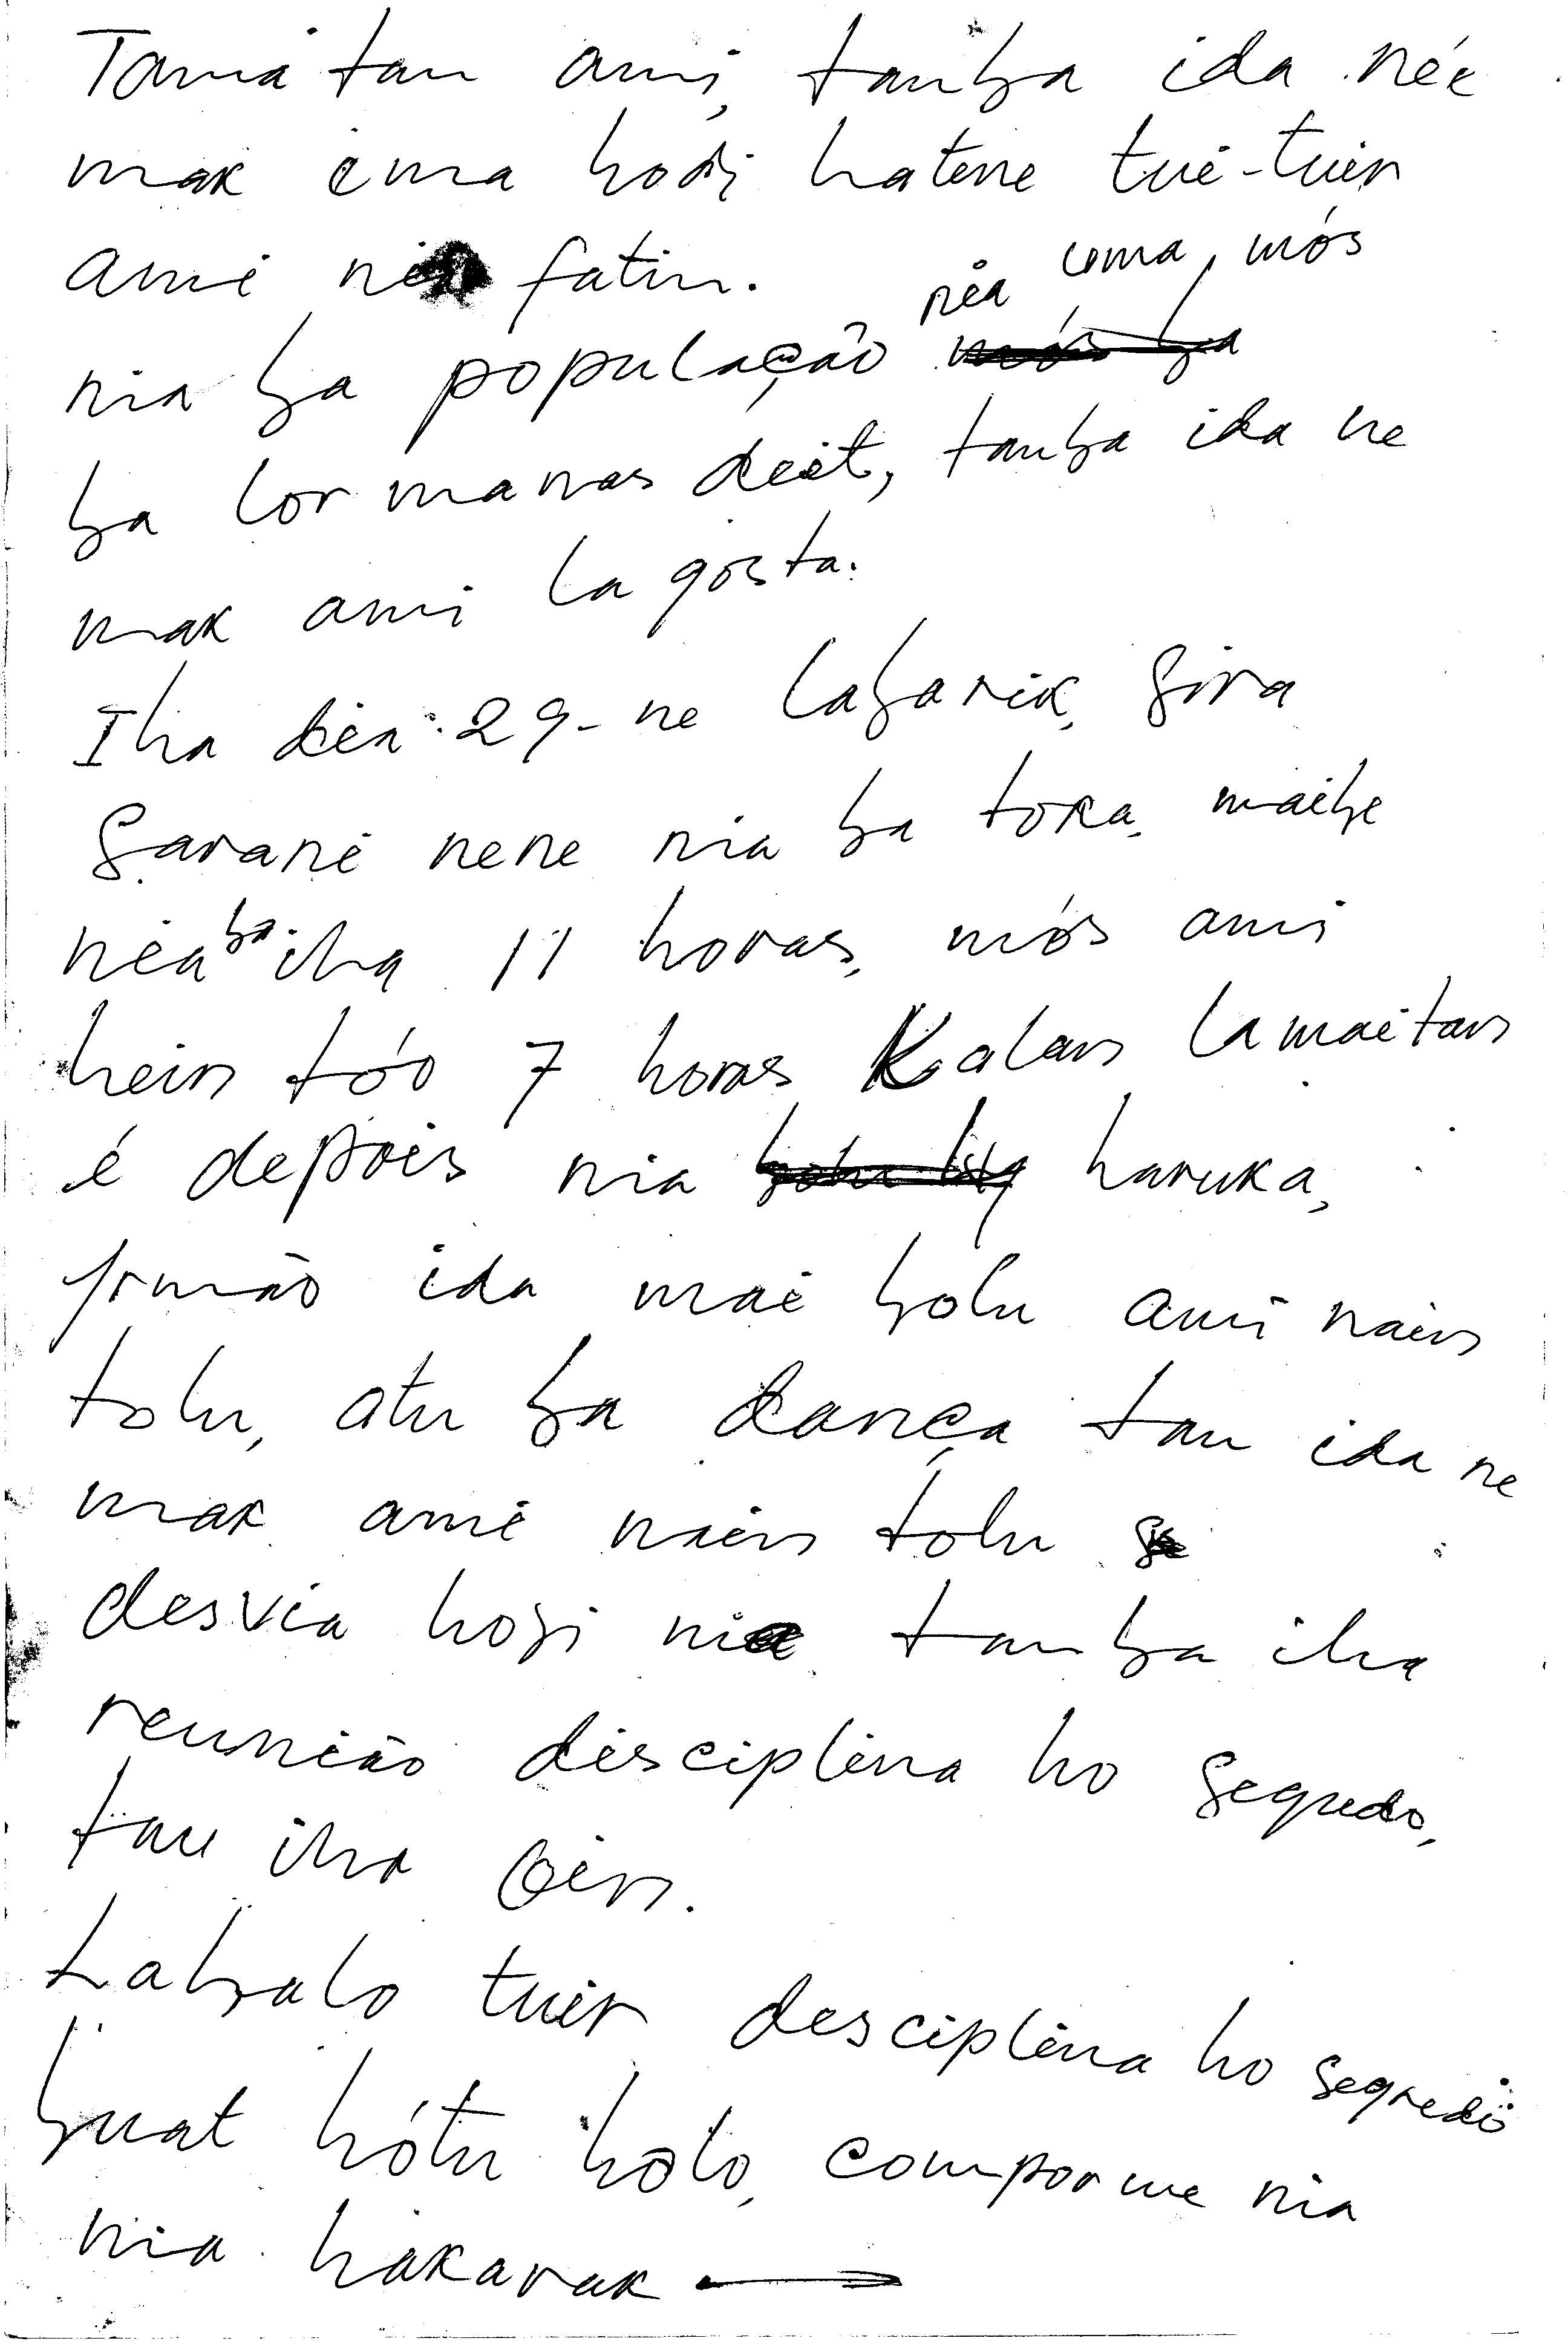 Tama tan ami, tanba ida née
mak ema hodi hatene tui-tuir
ami nia fatin.
nia ba população nia uma, mós
ba lor manas deit, tanba ida ne
mak ami la gosta.
Iha dia: 29- ne labarik, sira
Sarani nene nia ba toka, maibe
nia ba iha 11 horas, mós ami
hein tóo 7 horas Kalan la maitan
é depois nia haruka,
Irmão ida mai bolu ami nain
tolu, atu ba dança tan ida ne
mak ami nain tolu
desvia hosi nia tanba iha
reunião disciplina ho segredo,
tau iha Oin.
Labalo tuir desciplina ho segredo
buat hótu halo, comporme nia
nia hakarak